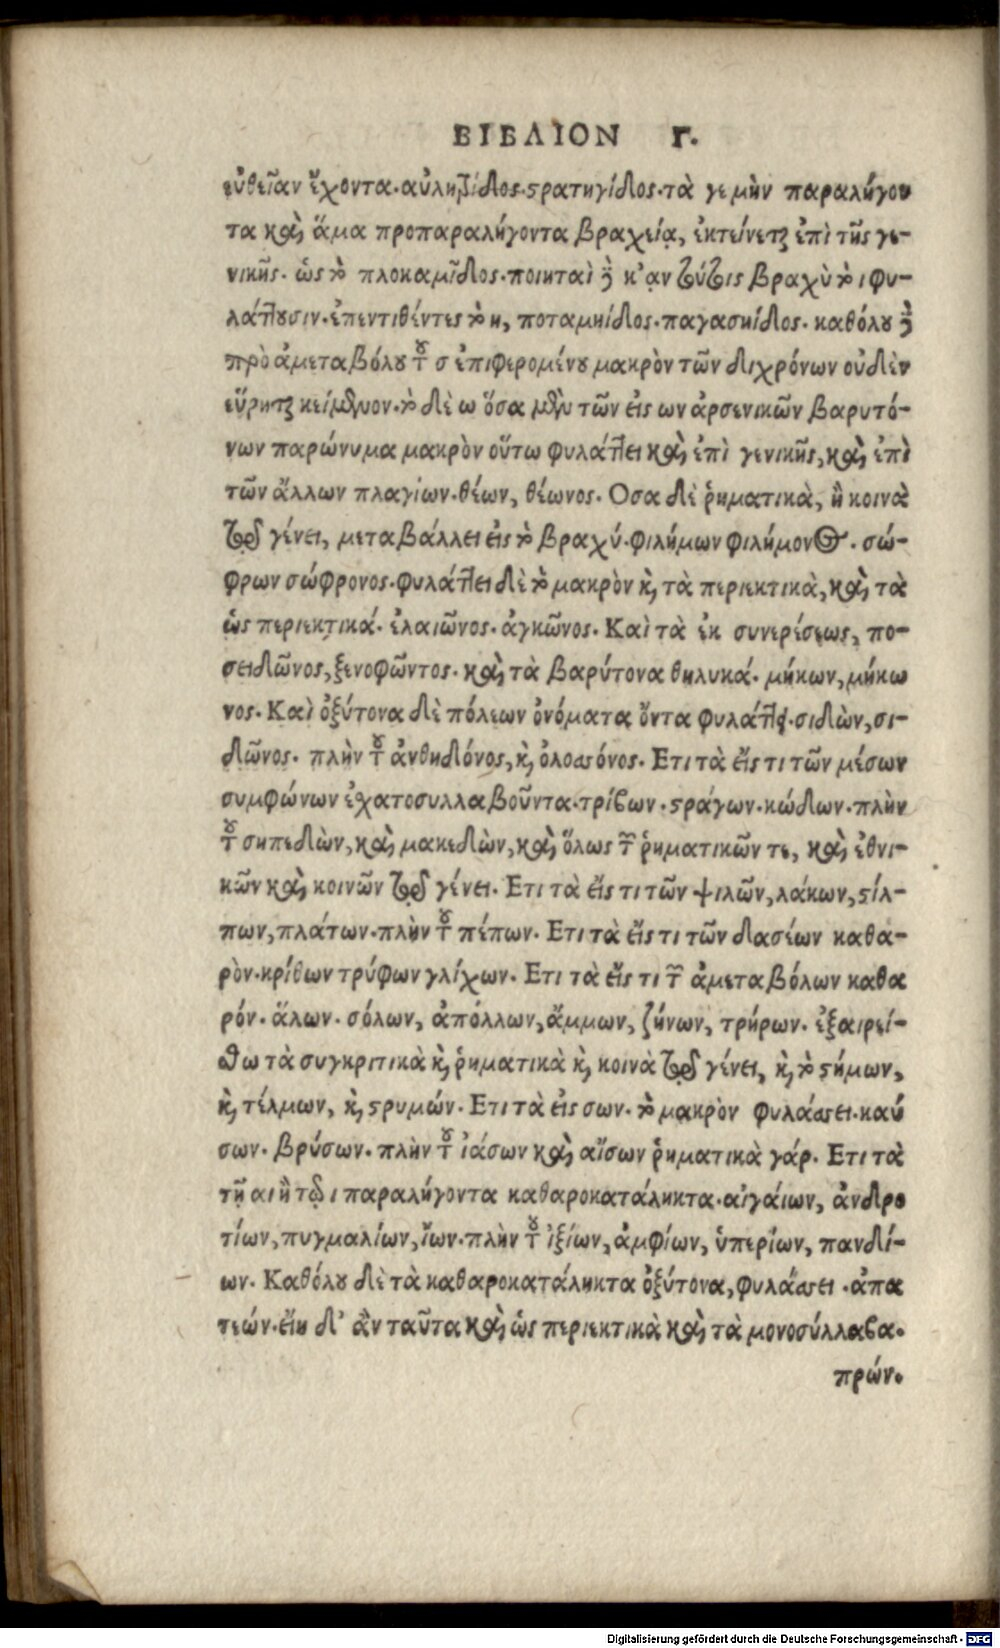 ΒΙΒΛΙΟΝ Γ.
εὐθεῖαν ἔχοντα. αὐλητρίδος. στρατηγίδος. τὰ γε μὴν παραλήγον
τα καὶ ἅμα προπαραλήγοντα βραχείᾳ, ἐκτείνεται ἐπὶ τῆς γε-
νικῆς. ὡς τὸ πλοκαμῖδος. ποιηταὶ δὲ κ'ᾳν ταύταις βραχὺ τὸ ι φυ-
λάττουσιν. ἐπεντιθέντες τὸ η, ποταμηίδος. παγασηίδος. καθόλου δὲ
πρὸ ἀμεταβόλου τοῦ σ ἐπιφερομένου μακρὸν τῶν διχρόνων οὐδὲν
εὕρηται κείμενον. τὸ δὲ ω ὅσα μὲν τῶν εἰς ων ἀρσενικῶν βαρυτό-
νων παρώνυμα μακρὸν οὕτω φυλάττει καὶ ἐπὶ γενικῆς, καὶ ἐπὶ
τῶν ἄλλων πλαγίων. θέων, θέωνος. Οσα δὲ ῥηματικὰ, ἢ κοινὰ
τῷ γένει, μεταβάλλει εἰς τὸ βραχύ. φιλήμων φιλήμονος. σώ-
φρων σώφρονος. φυλάττει δὲ τὸ μακρὸν καὶ τὰ περιεκτικὰ, καὶ τὰ
ὡς περιεκτικά. ἐλαιῶνος. ἀγκῶνος. Καὶ τὰ ἐκ συνερέσεως, πο-
σειδῶνος, ξενοφῶντος. καὶ τὰ βαρύτονα θηλυκά. μήκων, μήκω
νος. Καὶ ὀξύτονα δὲ πόλεων ὀνόματα ὄντα φυλάττει. σιδὼν, σι-
δῶνος. πλὴν τοῦ ἀνθηδόνος, καὶ ὀλοασόνος. Ετι τὰ εἴς τι τῶν μέσων
συμφώνων ἑκατοσυλλαβοῦντα. τρίβων. στράγων. κώδων. πλὴν
τοῦ σηπεδὼν, καὶ μακεδὼν, καὶ ὅλως τῶν ῥηματικῶν τε, καὶ ἐθνι-
κῶν καὶ κοινῶν τῷ γένει. Ετι τὰ εἴς τι τῶν ψιλῶν, λάκων, στίλ-
πων, πλάτων. πλὴν τοῦ πέπων. Ετι τὰ εἴς τι τῶν δασέων καθα-
ρὸν. κρίθων τρύφων γλίχων. Ετι τὰ εἴς τι τῶν ἀμεταβόλων καθα
ρόν. ἅλων. σόλων, ἀπόλλων, ἄμμων, ζήνων, τρήρων. ἐξαιρεί-
σθω τὰ συγκριτικὰ καὶ ῥηματικὰ καὶ κοινὰ τῷ γένει, καὶ τὸ στήμων,
καὶ τέλμων, καὶ στρυμών. Ετι τὰ εἰς σων. τὸ μακρὸν φυλάσσει. καύ
σων. βρύσων. πλὴν τοῦ ἰάσων καὶ αἴσων ῥηματικὰ γάρ. Ετι τὰ
τῇ αι ἢ τῷ ι παραλήγοντα καθαροκατάληκτα. αἰγαίων, ἀνδρο
τίων, πυγμαλίων, ἴων. πλὴν τοῦ ἰξίων, ἀμφίων, ὑπερίων, πανδί-
ων. Καθόλου δὲ τὰ καθαροκατάληκτα ὀξύτονα, φυλάσσει. ἀπα
τεών. εἴη δ' ἂν ταῦτα καὶ ὡς περιεκτικὰ καὶ τὰ μονοσύλλαβα.
πρών.
Digitalisierung gefördert durch die Deutsche Forschungsgemeinschaft - DFG